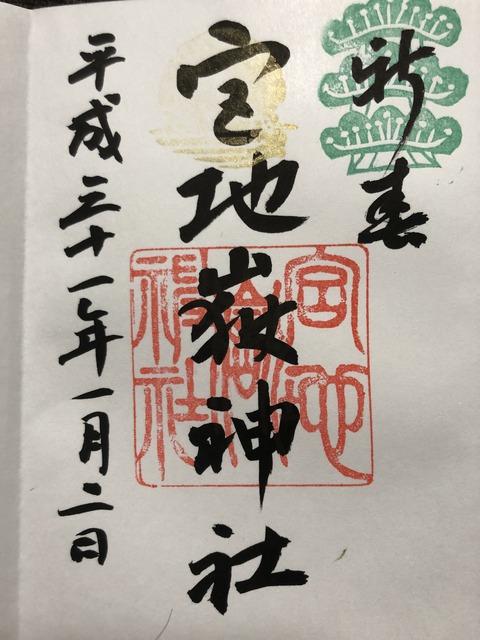 新春
宮地嶽神社
宮地
嶽
神社
平成三十一年一月二日